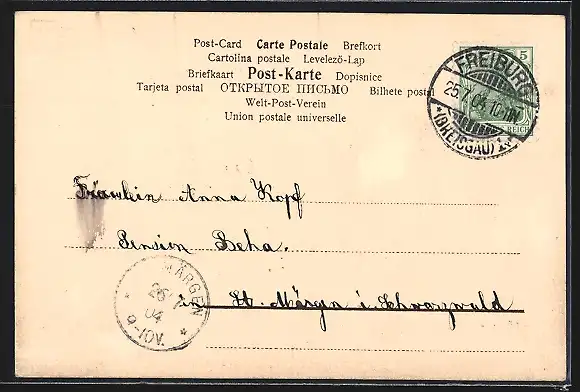 Post-Card Carte Postale Brefkort
Cartolina postale Levelező-Lap
Briefkaart Post-Karte Dopisnice
Tarjeta postal ОТКРЫТОЕ ПИСЬМО Bilhete postal
Welt-Post-Verein
Union postale universelle
5
REICH
FREIBURG
25. 04. 10-11N
*(BREISGAU)1*
Fräulein Anna Kopf
Pension Beha.
in St. Märgen i. Schwarzwald
MÄRGEN
26
04
9-10V.